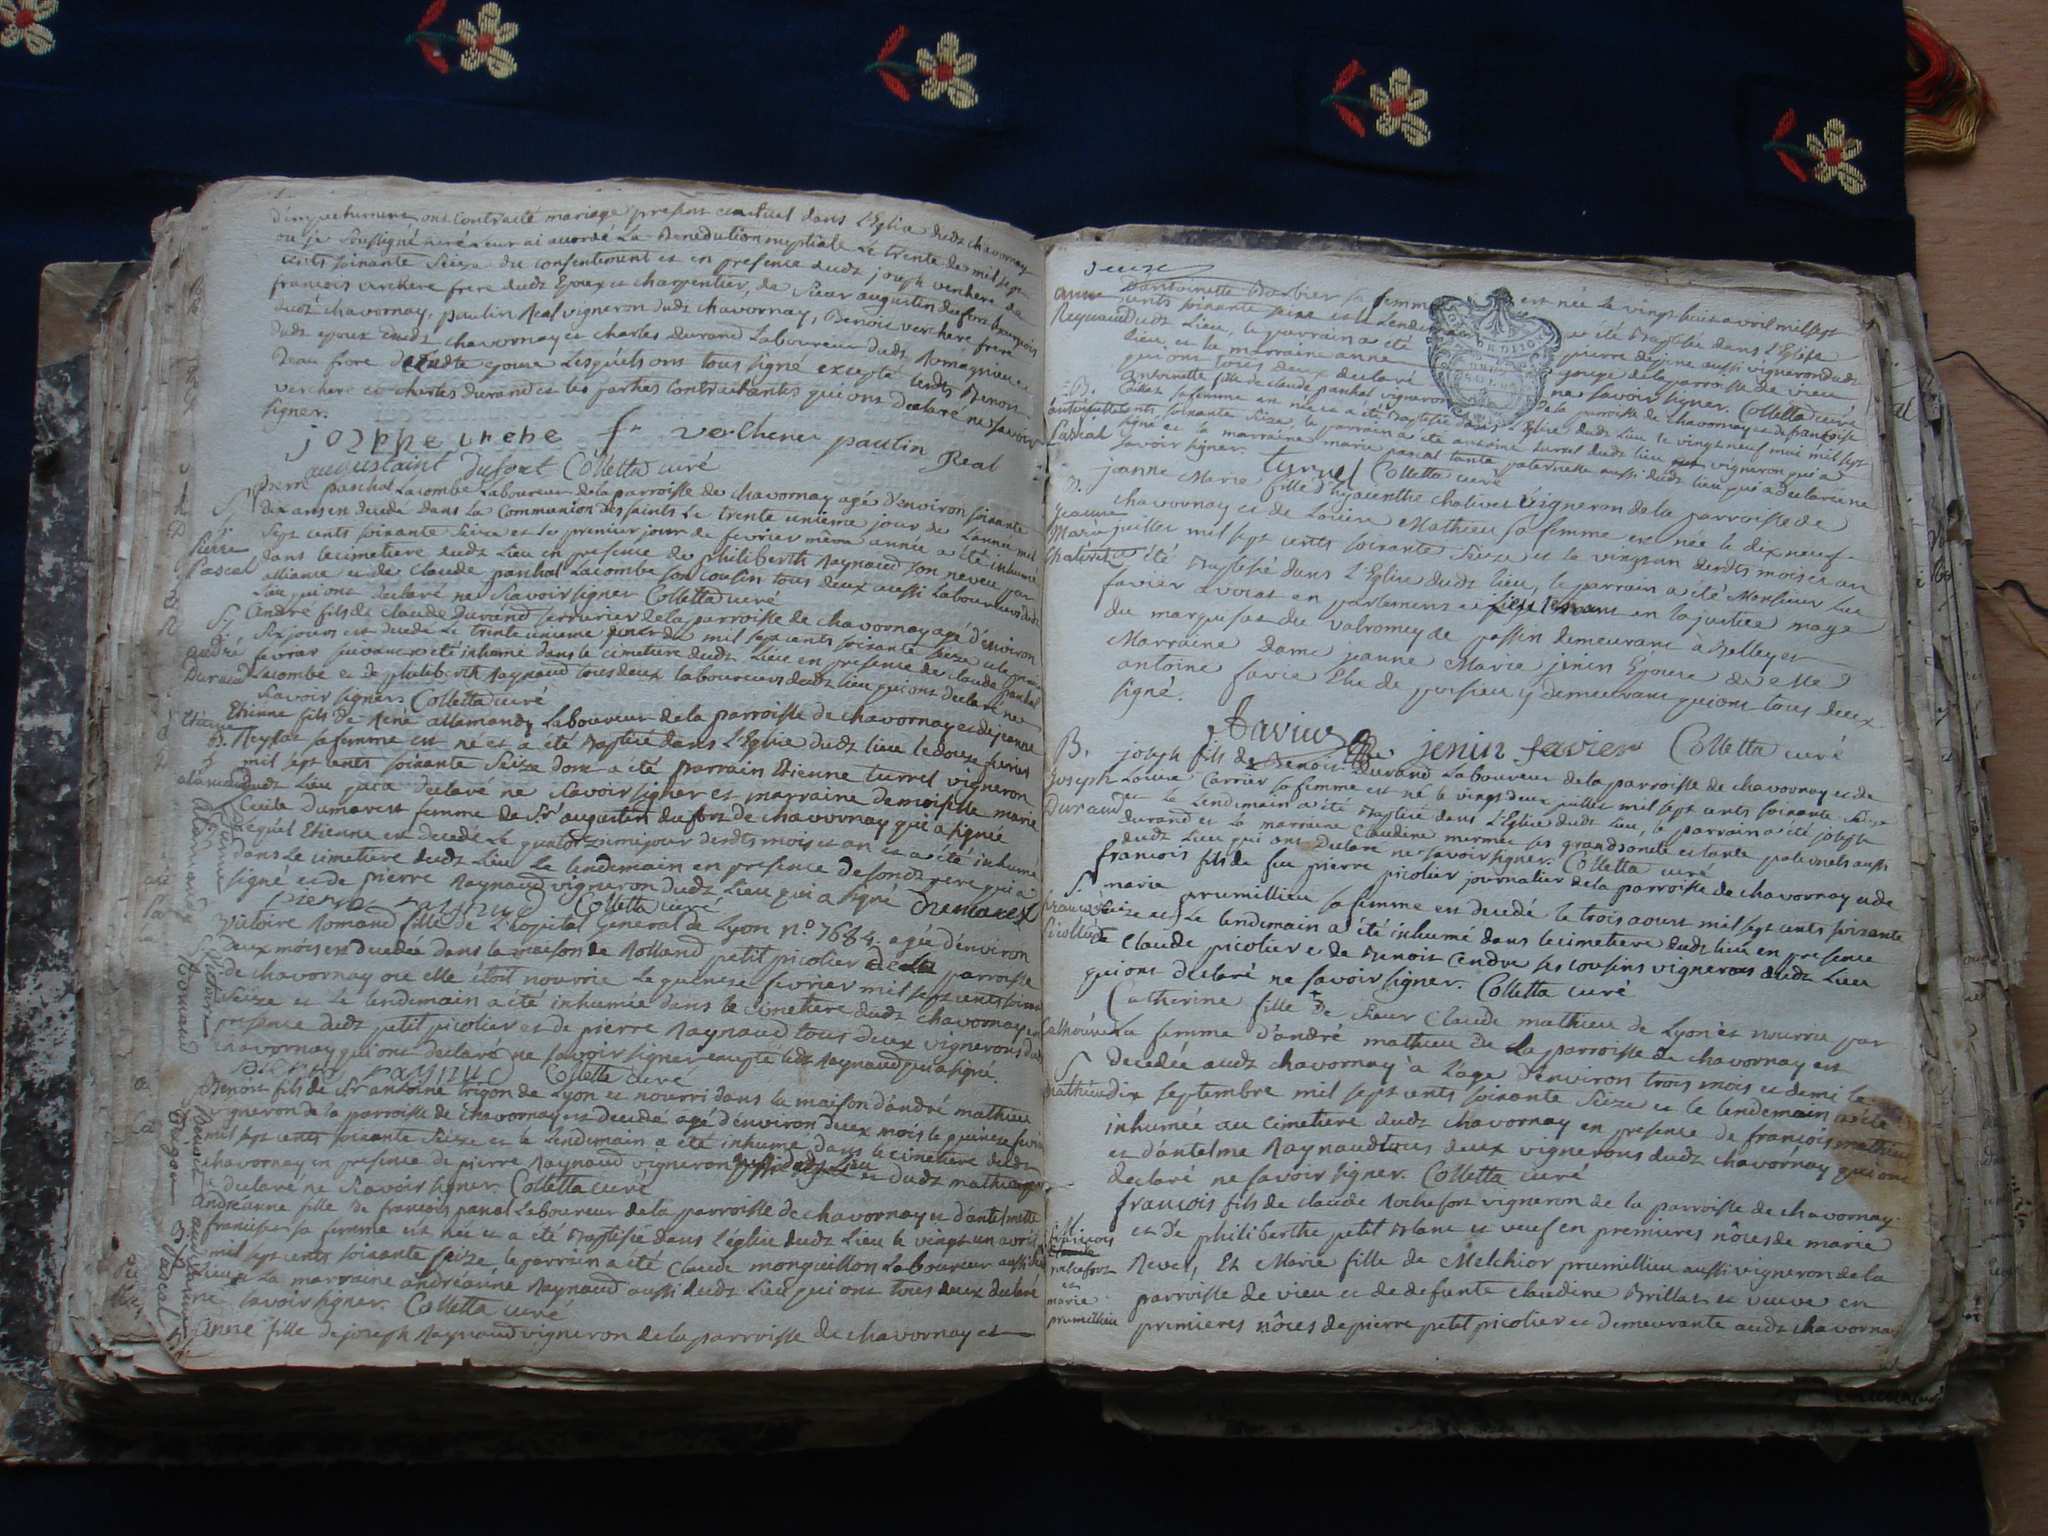 d'impethumene ont contracté mariage present et actuel dans l'Eglise dudt chavornay
ou je soussigné curé leur ai accordé la Benediction nuptiale le trente de mil sept
cents soixante Seize du consentement et en presence dudt joseph verchere de
francois verchere frere dudt Epoux et charpentier, de Sieur augustin dufort bourgeois
dudt chavornay, paulin Real vigneron dudt chavornay, Benoit verchere frere
dudt epoux dudt chavornay et charles durand Laboureur dudt Romagnieu et
Beau frere de ladte epouse Lesquels ont tous signé excepté lesdts Benoit
verchere et charles durand et les parties Contractantes qui ont declaré ne savoir
signer.
fr verchere paulin Real
augustaint dufort Colletta curé
pierre paschal Lacombe Laboureur de la parroisse de chavornay agé d'environ soixante
dix ans en decedé dans la Communion des saints Le trente unieme jour de L'année mil
sept cents soixante Seize et le premier jour de fevrier meme année a été inhumé
dans le cimetiere dudt Lieu en presence de philiberth Raynaud son neveu par
alliance et de Claude paschal Lacombe son cousin tous deux aussi Laboureurs dudt
Lieu qui ont declaré ne scavoir signer Colletta curé
S.
pierre
Pascal
André fils de Claude Durand serrurier de la parroisse de chavornay agé d'environ
Six jours est decedé Le trente unieme mil sept cents soixante Seize et le premier
fevrier suivant a été inhumé dans le cimetiere dudt Lieu en presence de claude paschal
Lacombe et de philiberth Raynaud tous deux laboureurs dudt lieu qui ont declaré ne
scavoir signer Colletta curé
S.
andré
Durand
Etienne fils de René allemand Laboureur de la parroisse de chavornay et de jeanne
Reydet sa femme est né et a été Baptisé dans l'Eglise dudt lieu le douze fevrier
mil sept cents soixante Seize dont a été parrain Etienne turrel vigneron
dudt Lieu qui a declaré ne scavoir signer et marraine demoiselle marie
Cecile dumarest femme de Sr augustin dufort de chavornay qui a signé
Lequel Etienne est decedé Le quatorzieme jour desdts mois et an et a été inhumé
dans Le cimetiere dudt Lieu Le lendemain en presence de sondt pere qui a
signé et de pierre Raynaud vigneron dudt Lieu qui a signé Dumarest
pierre raynue Colletta curé
Victoire Romand fille de L'hopital General de Lyon n.º 7684. agée d'environ
deux mois est decedée dans la maison de Rolland petit picolier de la parroisse
de chavornay ou elle étoit nourrie Le quinze fevrier mil sept cents soixante
Seize et Le lendemain a été inhumée dans le cimetiere dudt chavornay en
presence dudt petit picolier et de pierre Raynaud tous deux vignerons dudt
chavornay qui ont declaré ne savoir signer excepté ledt Raynaud qui a signé.
pierre raynue Colletta curé
Victoire
Romand
Benoit fils de Sr antoine trigon de Lyon et nourri dans la maison d'andré mathieu
vigneron de la parroisse de chavornay est decedé agé d'environ deux mois le quinze fevrier
mil sept cents soixante Seize et le Lendemain a été inhumé dans le cimetiere dudt
chavornay en presence de pierre Raynaud vigneron aussi dudt Lieu et dudt mathieu qui
declaré ne scavoir signer. Colletta curé
Andréanne fille de francois panal Laboureur de la parroisse de chavornay et d'antelmette
sa femme est née et a été Baptisée dans l'église dudt Lieu le vingt un avril
mil sept cents soixante Seize, le parrain a été Claude monguillon Laboureur aussi dudt
Lieu et La marraine andréanne Raynaud aussi dudt Lieu qui ont tous deux declaré
ne savoir signer. Colletta curé
Anne fille de joseph Raynaud vigneron de la parroisse de chavornay et
anne
Reynaud
d'antoinette Barbier sa femme est née le vingt huit avril mil sept
cents soixante Seize et le Lendemain a été Baptisée dans l'Eglise
dudt Lieu, le parrain a été pierre dejone aussi vigneron dudt
lieu et la marraine anne gouge de la parroisse de vieu
qui ont tous deux declaré ne savoir signer. Colletta curé
B.
antoinette
Paskal
antoinette fille de claude paschal vigneron de la parroisse de chavornay et de francoise
sa femme est née et a été Baptisée dans L'Eglise dudt Lieu le vingt neuf mai mil sept
cents soixante Seize, le parrain a été antoine turrel dudt lieu vigneron qui a
signé et la marraine marie pascal tante paternelle aussi dudt lieu qui a declaré ne
savoir signer. turrel Colletta curé
B.
jeanne
Marie
Chalivet
jeanne Marie fille d'hyacinthe chalivet vigneron de la parroisse de
chavornay et de Louise Mathieu sa femme est née le dix neuf
juillet mil sept cents soixante Seize et le vingt un desdts mois et an
a été Baptisée dans L'Eglise dudt lieu, le parrain a été Monsieur Luc
favier avocat en parlement et Lieutenant en la justice mage
du marquisat du valromey de passin demeurant à Belley et
Marraine dame jeanne Marie jenin Epouse de Me
antoine favre de demeurant qui ont tous deux
signé.
favier jenin favier Colletta curé
B.
joseph
Durand
joseph fils de Benoit Durand Laboureur de la parroisse de chavornay et de
Louise Carrier sa femme est né le vingt deux juillet mil sept cents soixante Seize
et le Lendemain a été Baptisé dans L'Eglise dudt Lieu, le parrain a été joseph
durand et la marraine Claudine mermet ses grand oncle et tante paternels aussi
dudt Lieu qui ont declaré ne savoir signer. Colletta curé
S.
francois
Picollier
francois fils de feu pierre picolier journalier de la parroisse de chavornay et de
marie prumillieu sa femme est decedé le trois aout mil sept cents soixante
Seize et Le lendemain a été inhumé dans le cimetiere dudt lieu en presence
de Claude picolier et de Benoit Cendre ses cousins vignerons dudt Lieu
qui ont declaré ne savoir signer. Colletta curé
Catherine
S
Mathieu
Catherine fille de Sieur Claude mathieu de Lyon et nourrie par
La femme d'andré mathieu de la parroisse de chavornay est
decedée audt chavornay à l'age d'environ trois mois et demi le
dix septembre mil sept cents soixante Seize et le lendemain a été
inhumée au cimetiere dudt chavornay en presence de francois mathieu
et d'antelme Raynaud tous deux vignerons dudt chavornay qui ont
declaré ne savoir signer. Colletta curé
M.
francois
rochefort
et
marie
prumillieu
francois fils de claude Rochefort vigneron de la parroisse de chavornay
et de philiberthe petit Blanc et veuf en premieres nôces de marie
Revel, Et Marie fille de Melchior prumillieu aussi vigneron de la
parroisse de vieu et de defunte claudine Brillat et veuve en
premieres nôces de pierre petit picolier et demeurante audt chavornay